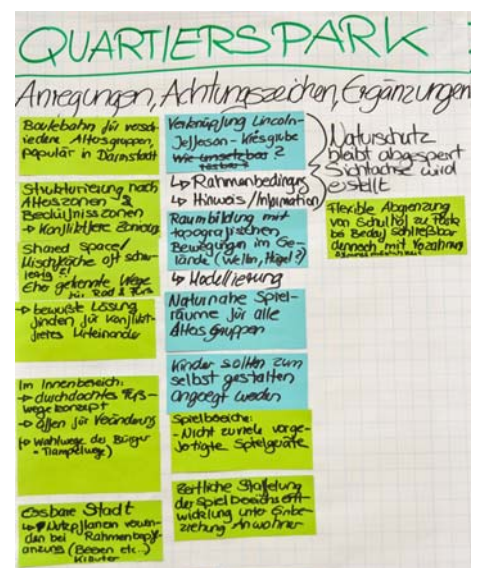 QUARTIERSPARK
Anregungen, Achtungszeichen, Ergänzungen
Boulebahn für versch-
iedene Altersgruppen,
populär in Darmstadt
Strukturierung nach
Alterszonen
Bedürfniszonen
→ Konfliktfreie Zonierung
Shared Space/
Mischfläche oft schw-
ierig!
Eher getrennte Wege
für Rad & Fuß
→ bewusste Lösung
finden für konflikt-
freies Miteinander
Im Innenbereich:
→ durchdachtes Fuß-
wegekonzept
→ offen für Veränderung
(→ Wahlwege der Bürger
- Trampelwege)
Essbare Stadt
↳ Nutzpflanzen verwen-
den bei Rahmenbepfl-
anzung (Beeren etc..)
Kräuter
Verknüpfung Lincoln-
Jefferson-Kiesgrube
Wie umsetzbar?
↳ Rahmenbedingung
↳ Hinweis/Information
Raumbildung mit
topografischen
Bewegungen im Ge-
lände (Wellen, Hügel?)
↳ Modellierung
Naturnahe Spiel-
räume für alle
Altersgruppen
Kinder sollten zum
selbst gestalten
angeregt werden
Spielbereiche:
- Nicht zu viele vorge-
fertigte Spielgeräte
Zeitliche Staffelung
der Spielbereichsent-
wicklung unter Einbe-
ziehung Anwohner
Naturschutz
bleibt abgesperrt
Sichtachse wird
erstellt
Flexible Abgrenzung
von Schulhof zu Park
bei Bedarf schließbar
dennoch mit Verzahnung